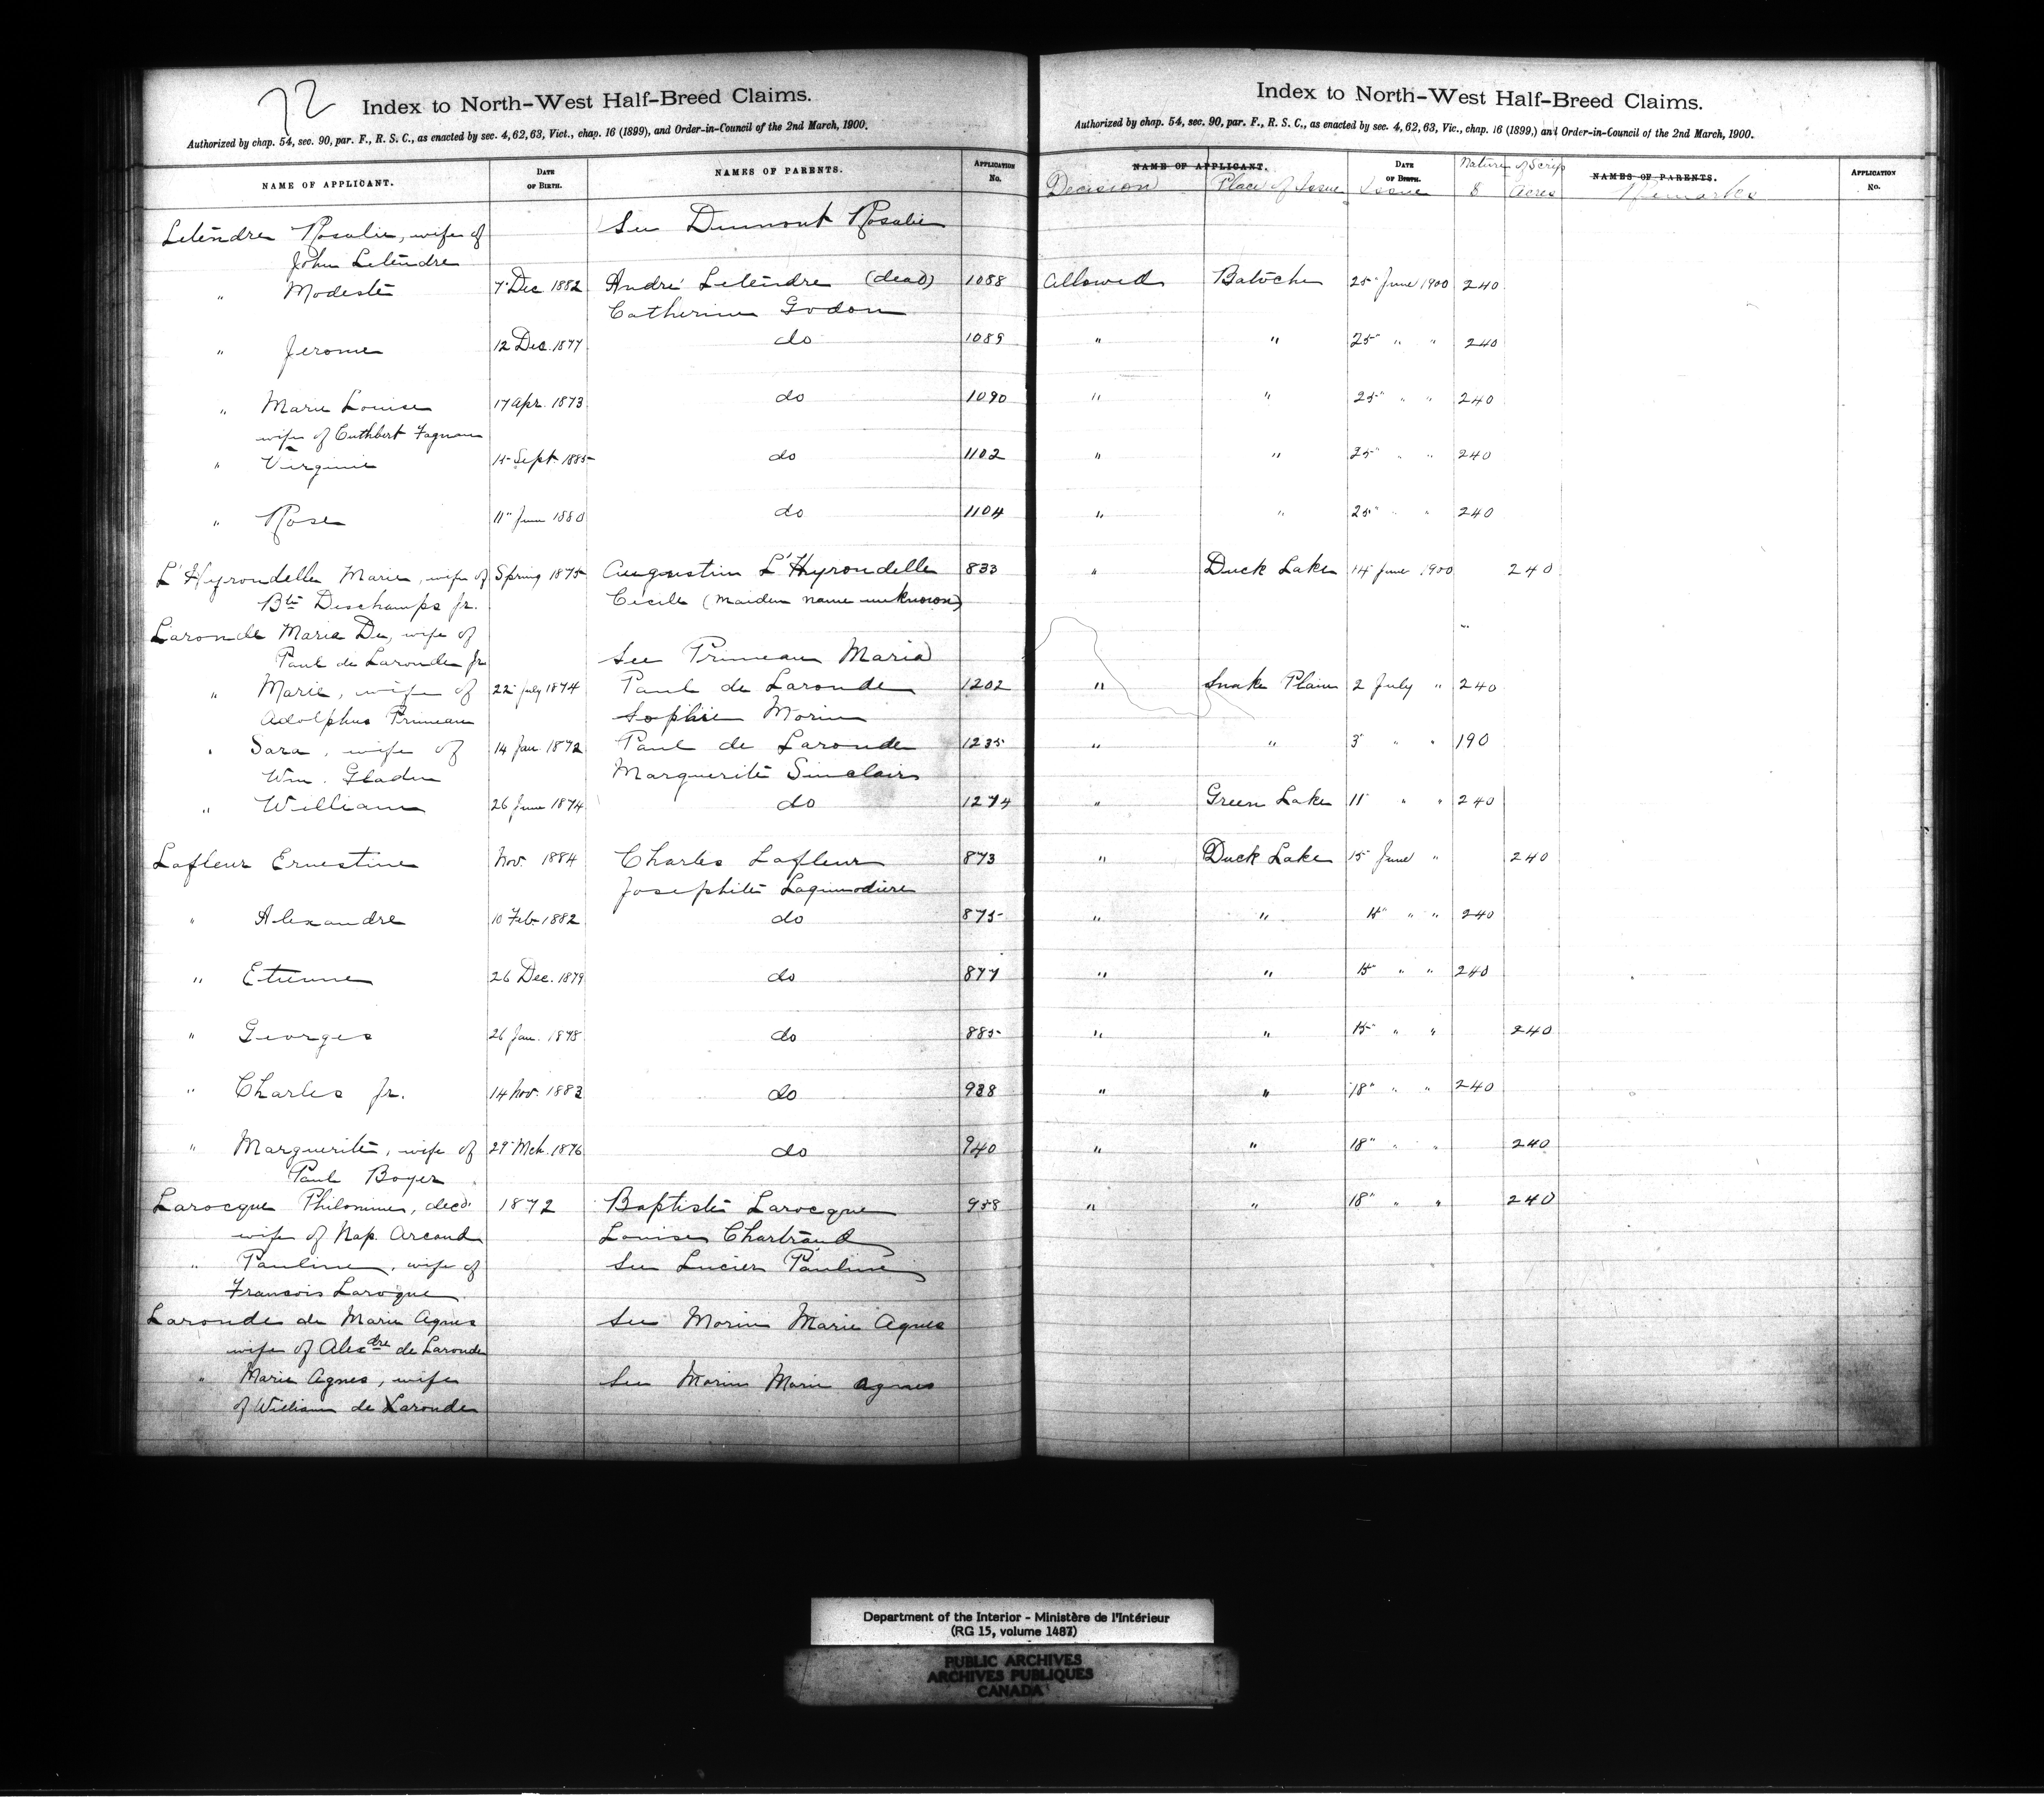 72
Index to North-West Half-Breed Claims.
Authorized by chap. 54, sec. 90, par. F., R. S. C., as enacted by sec. 4, 62, 63, Vict., chap. 16 (1899), and Order-in-Council of the 2nd March, 1900.
NAME OF APPLICANT. DATE OF BIRTH. NAMES OF PARENTS. APPLICATION No.
Letendre Rosalie, wife of See Dumont Rosalie
John Letendre
" Modeste 7" Dec 1882 André Letendre (dead) 1088
Catherine Godon
" Jerome 12 Dec. 1877 do 1089
" Marie Louise 17 Apr. 1873 do 1090
wife of Cuthbert Fagnan
" Virginie 15 Sept. 1885 do 1102
" Rose 11" June 1880 do 1104
L'Hyrondelle Marie, wife of Spring 1875 Augustin L'Hyrondelle 833
Bte Deschamps Jr. Cecile (maiden name unknown)
Laronde Maria De, wife of
Paul de Laronde Jr See Primeau Maria
" Marie, wife of 22" July 1874 Paul de Laronde 1202
Adolphus Primeau Sophie Morin
" Sara, wife of 14 Jan 1872 Paul de Laronde 1235
Wm. Gladu Marguerite Sinclair
" William 26 June 1874 do 1274
Lafleur Ernestine Nov. 1884 Charles Lafleur 873
Josephite Lagimodiere
" Alexandre 10 Feb 1882 do 875
" Etienne 26 Dec. 1879 do 877
" Georges 26 Jan. 1878 do 885
" Charles Jr. 14 Nov. 1883 do 938
" Marguerite, wife of 29" Mch. 1876 do 940
Paul Boyer
Larocque Philomene, decd. 1872 Baptiste Larocque 958
wife of Nap. Arcand Louise Chartrand
" Pauline, wife of See Lucier Pauline
Francois Laroque
Laronde de Marie Agnes See Morin Marie Agnes
wife of Alexdre de Laronde
" Marie Agnes, wife See Morin Marie Agnes
of William de Laronde
Index to North-West Half-Breed Claims.
Authorized by chap. 54, sec. 90, par. F., R. S. C., as enacted by sec. 4, 62, 63, Vic., chap. 16 (1899,) and Order-in-Council of the 2nd March, 1900.
NAME OF APPLICANT. DATE OF BIRTH. Nature of Scrip NAMES OF PARENTS. APPLICATION No.
Decision Place of Issue Issue $ Acres Remarks
Allowed Batoche 25" June 1900 240
" " 25" " " 240
" " 25" " " 240
" " 25" " " 240
" " 25" " " 240
" Duck Lake 14" June 1900 240
" Snake Plain 2 July " 240
" " 3" " " 190
" Green Lake 11" " " 240
" Duck Lake 15 June " 240
" " 15" " " 240
" " 15" " " 240
" " 15" " " 240
" " 18" " " 240
" " 18" " " 240
" " 18" " " 240
Department of the Interior - Ministère de l'Intérieur
(RG 15, volume 1487)
PUBLIC ARCHIVES
ARCHIVES PUBLIQUES
CANADA